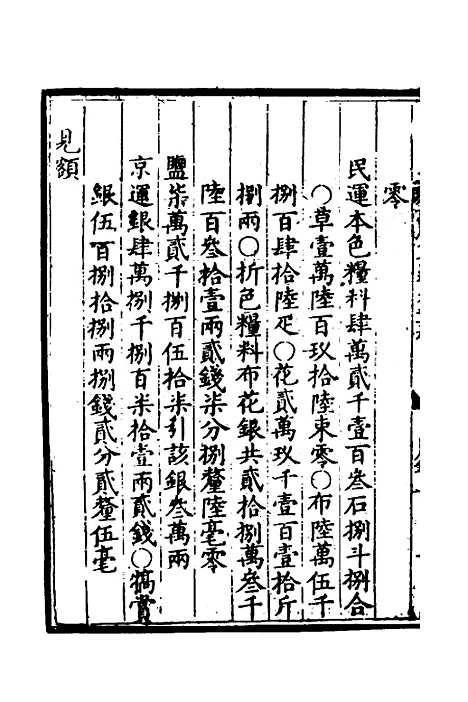 零
民運本色糧料肆萬貳千壹百叁石捌斗捌合
○草壹萬陸百玖拾陸束零○布陸萬伍千
捌百肆拾陸疋○花貳萬玖千壹百壹拾斤
捌兩○折色糧料布花銀共貳拾捌萬叁千
陸百叁拾壹兩貳錢柒分捌釐陸毫零
鹽柒萬貳千捌百伍拾柒引該銀叁萬兩
京運銀肆萬捌千捌百柒拾壹兩貳錢○犒賞
銀伍百捌拾捌兩捌錢貳分貳釐伍毫
見額